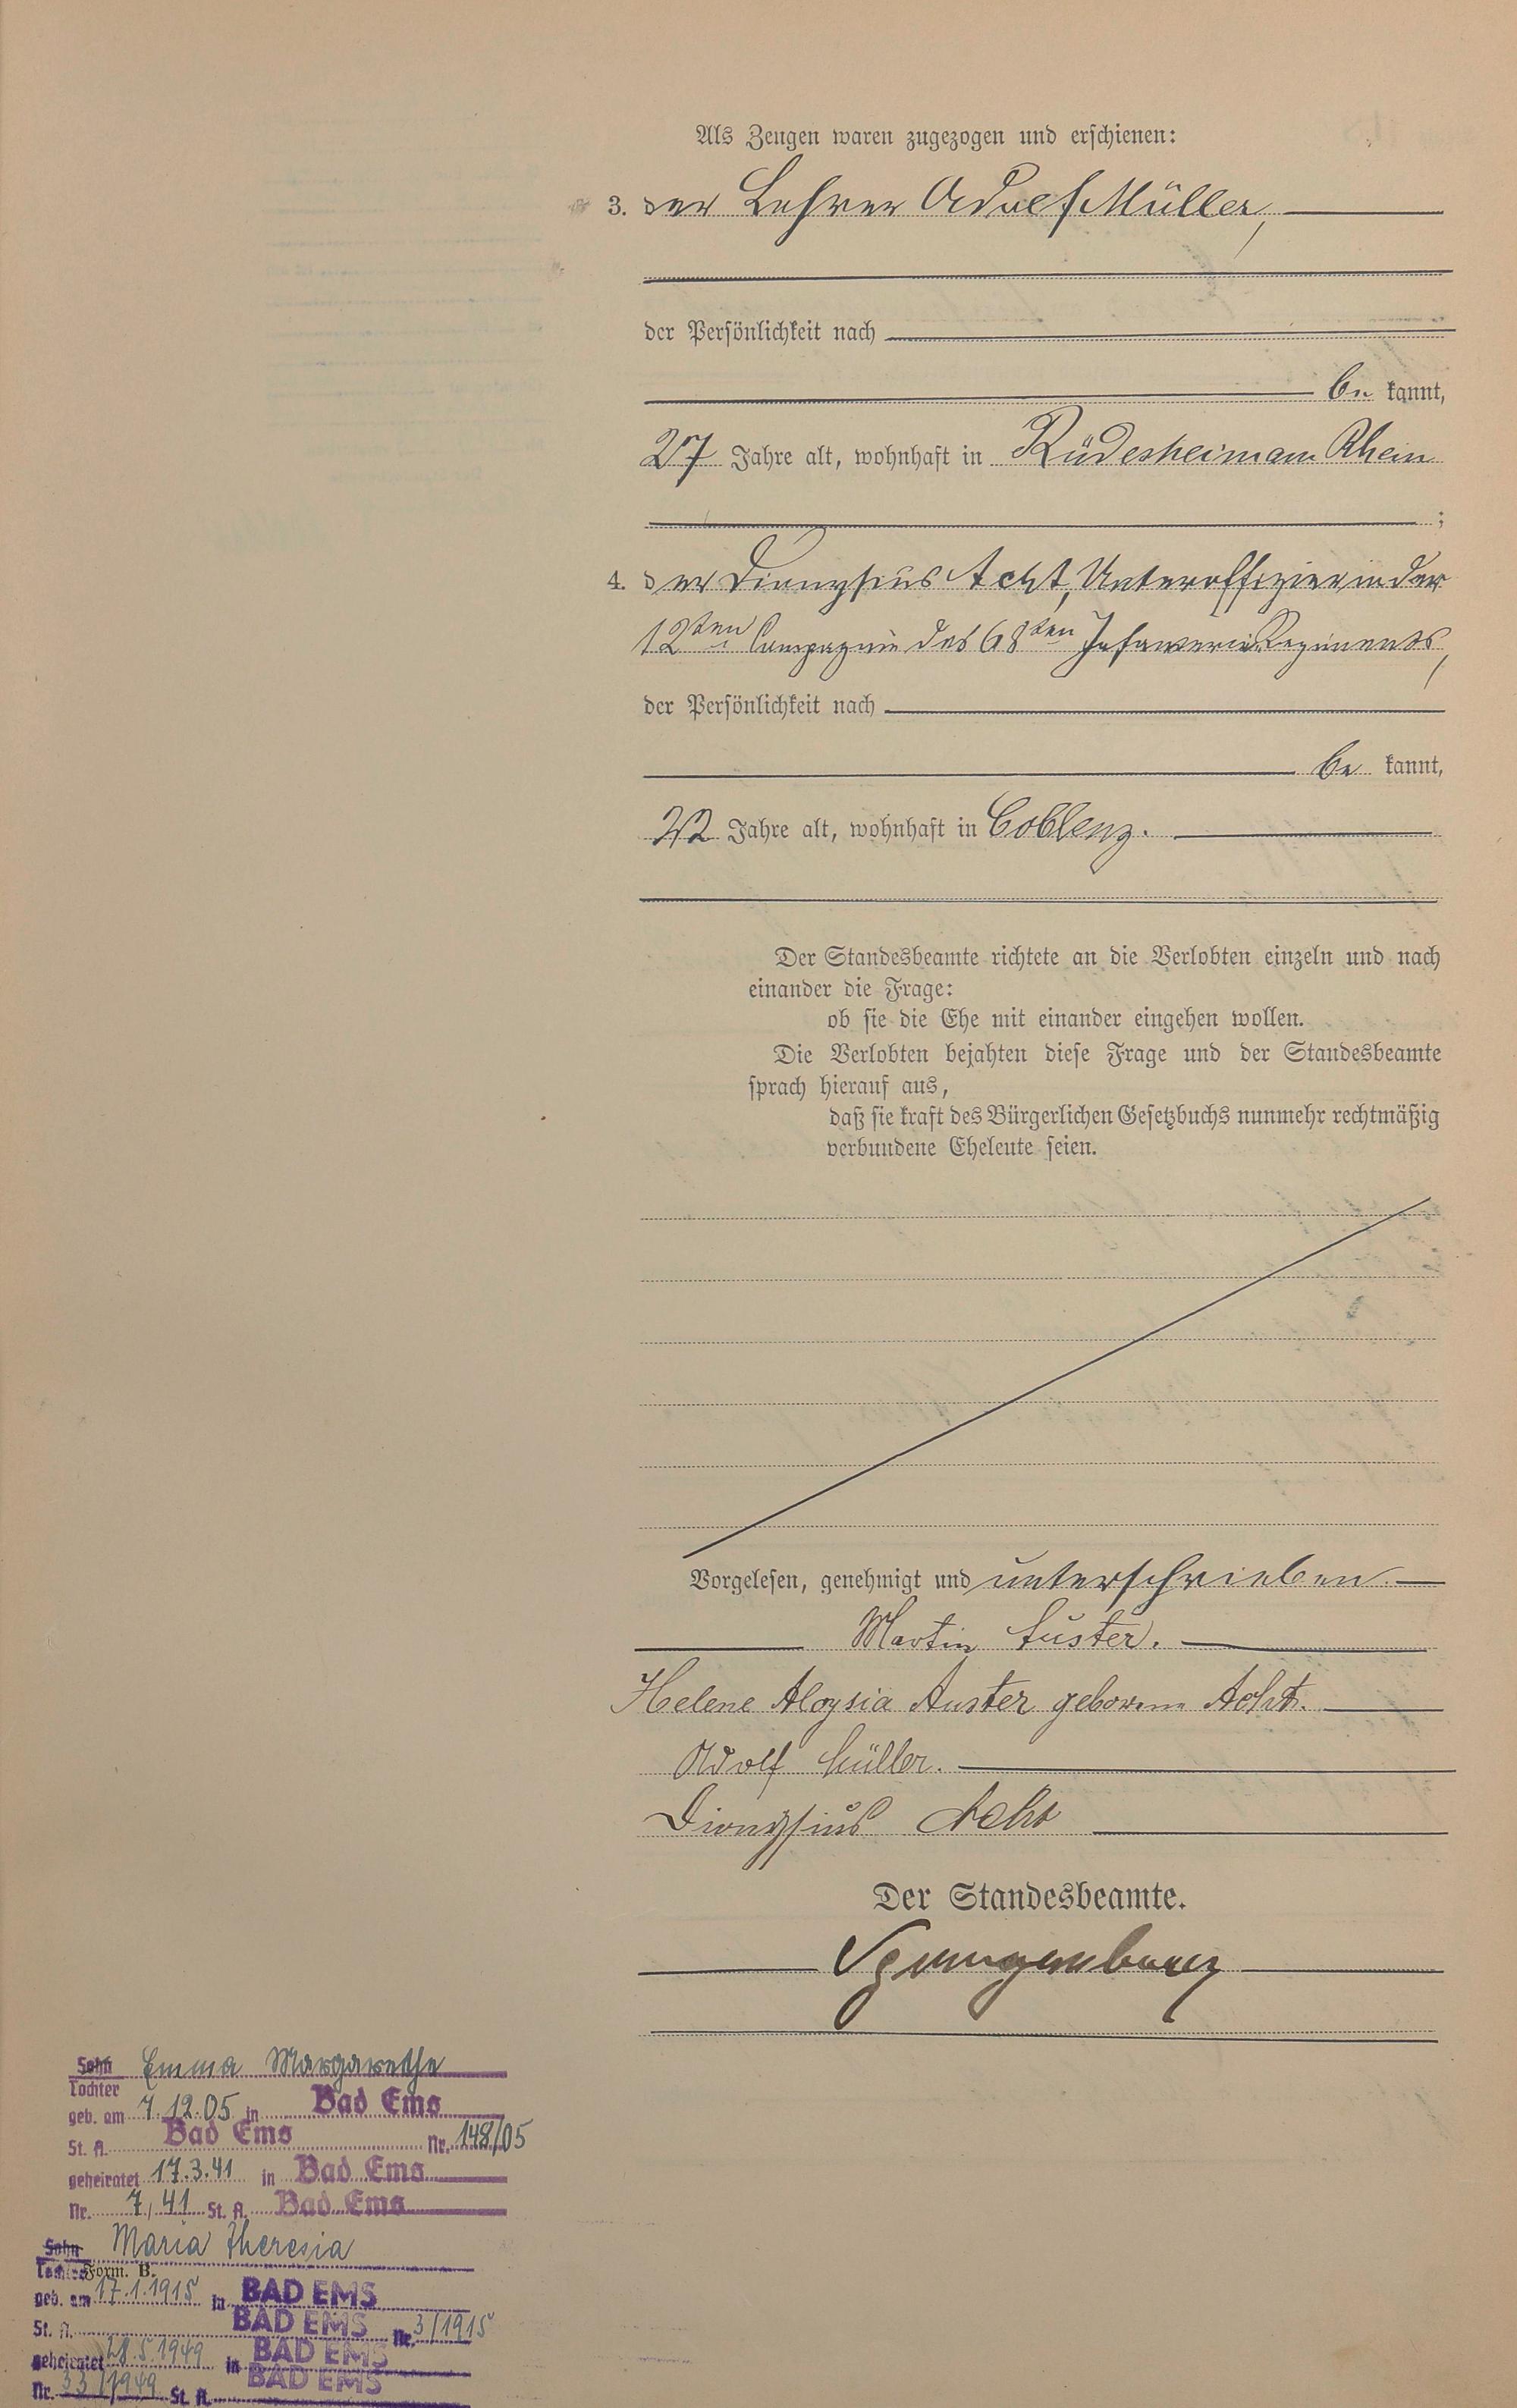 Als Zeugen waren zugezogen und erschienen:
3. der Lehrer Adolf Müller,
der Persönlichkeit nach
be kannt,
27 Jahre alt, wohnhaft in Rüdesheim am Rhein
;
4. der Dionysius Acht, Unteroffizier in der
12ten Compagnie des 68ten Infanterie Regiments,
der Persönlichkeit nach
be kannt,
22 Jahre alt, wohnhaft in Coblenz.
Der Standesbeamte richtete an die Verlobten einzeln und nach
einander die Frage:
ob sie die Ehe mit einander eingehen wollen.
Die Verlobten bejahten diese Frage und der Standesbeamte
sprach hierauf aus,
daß sie kraft des Bürgerlichen Gesetzbuchs nunmehr rechtmäßig
verbundene Eheleute seien.
Vorgelesen, genehmigt und unterschrieben.
Martin Auster.
Helene Aloysia Auster geborene Acht.
Adolf Müller.
Dionysius Acht
Der Standesbeamte.
Spangenberg
Sohn Emma Margarethe
Tochter
geb. am 7.12.05 in Bad Ems
St. A. Bad Ems Nr. 148/05
geheiratet 17.3.41 in Bad Ems
Nr. 7/41 St. A. Bad Ems
Sohn Maria Theresia
Tochter Form. B.
geb. am 17.1.1915 in BAD EMS
St. A. BAD EMS Nr. 3/1915
geheiratet 28.5.1949 in BAD EMS
Nr. 33/1949 St. A. BAD EMS